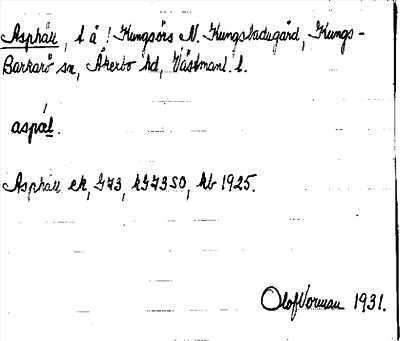 Asphäll, t å! Kungsörs N. Kungsladugård, Kungs-
Barkarö sn, Åkerbo hd, Västmanl. l.
aspä́l.
Asphäll ek, G73, kG73SO, hb 1925.
Olof Vorman 1931.